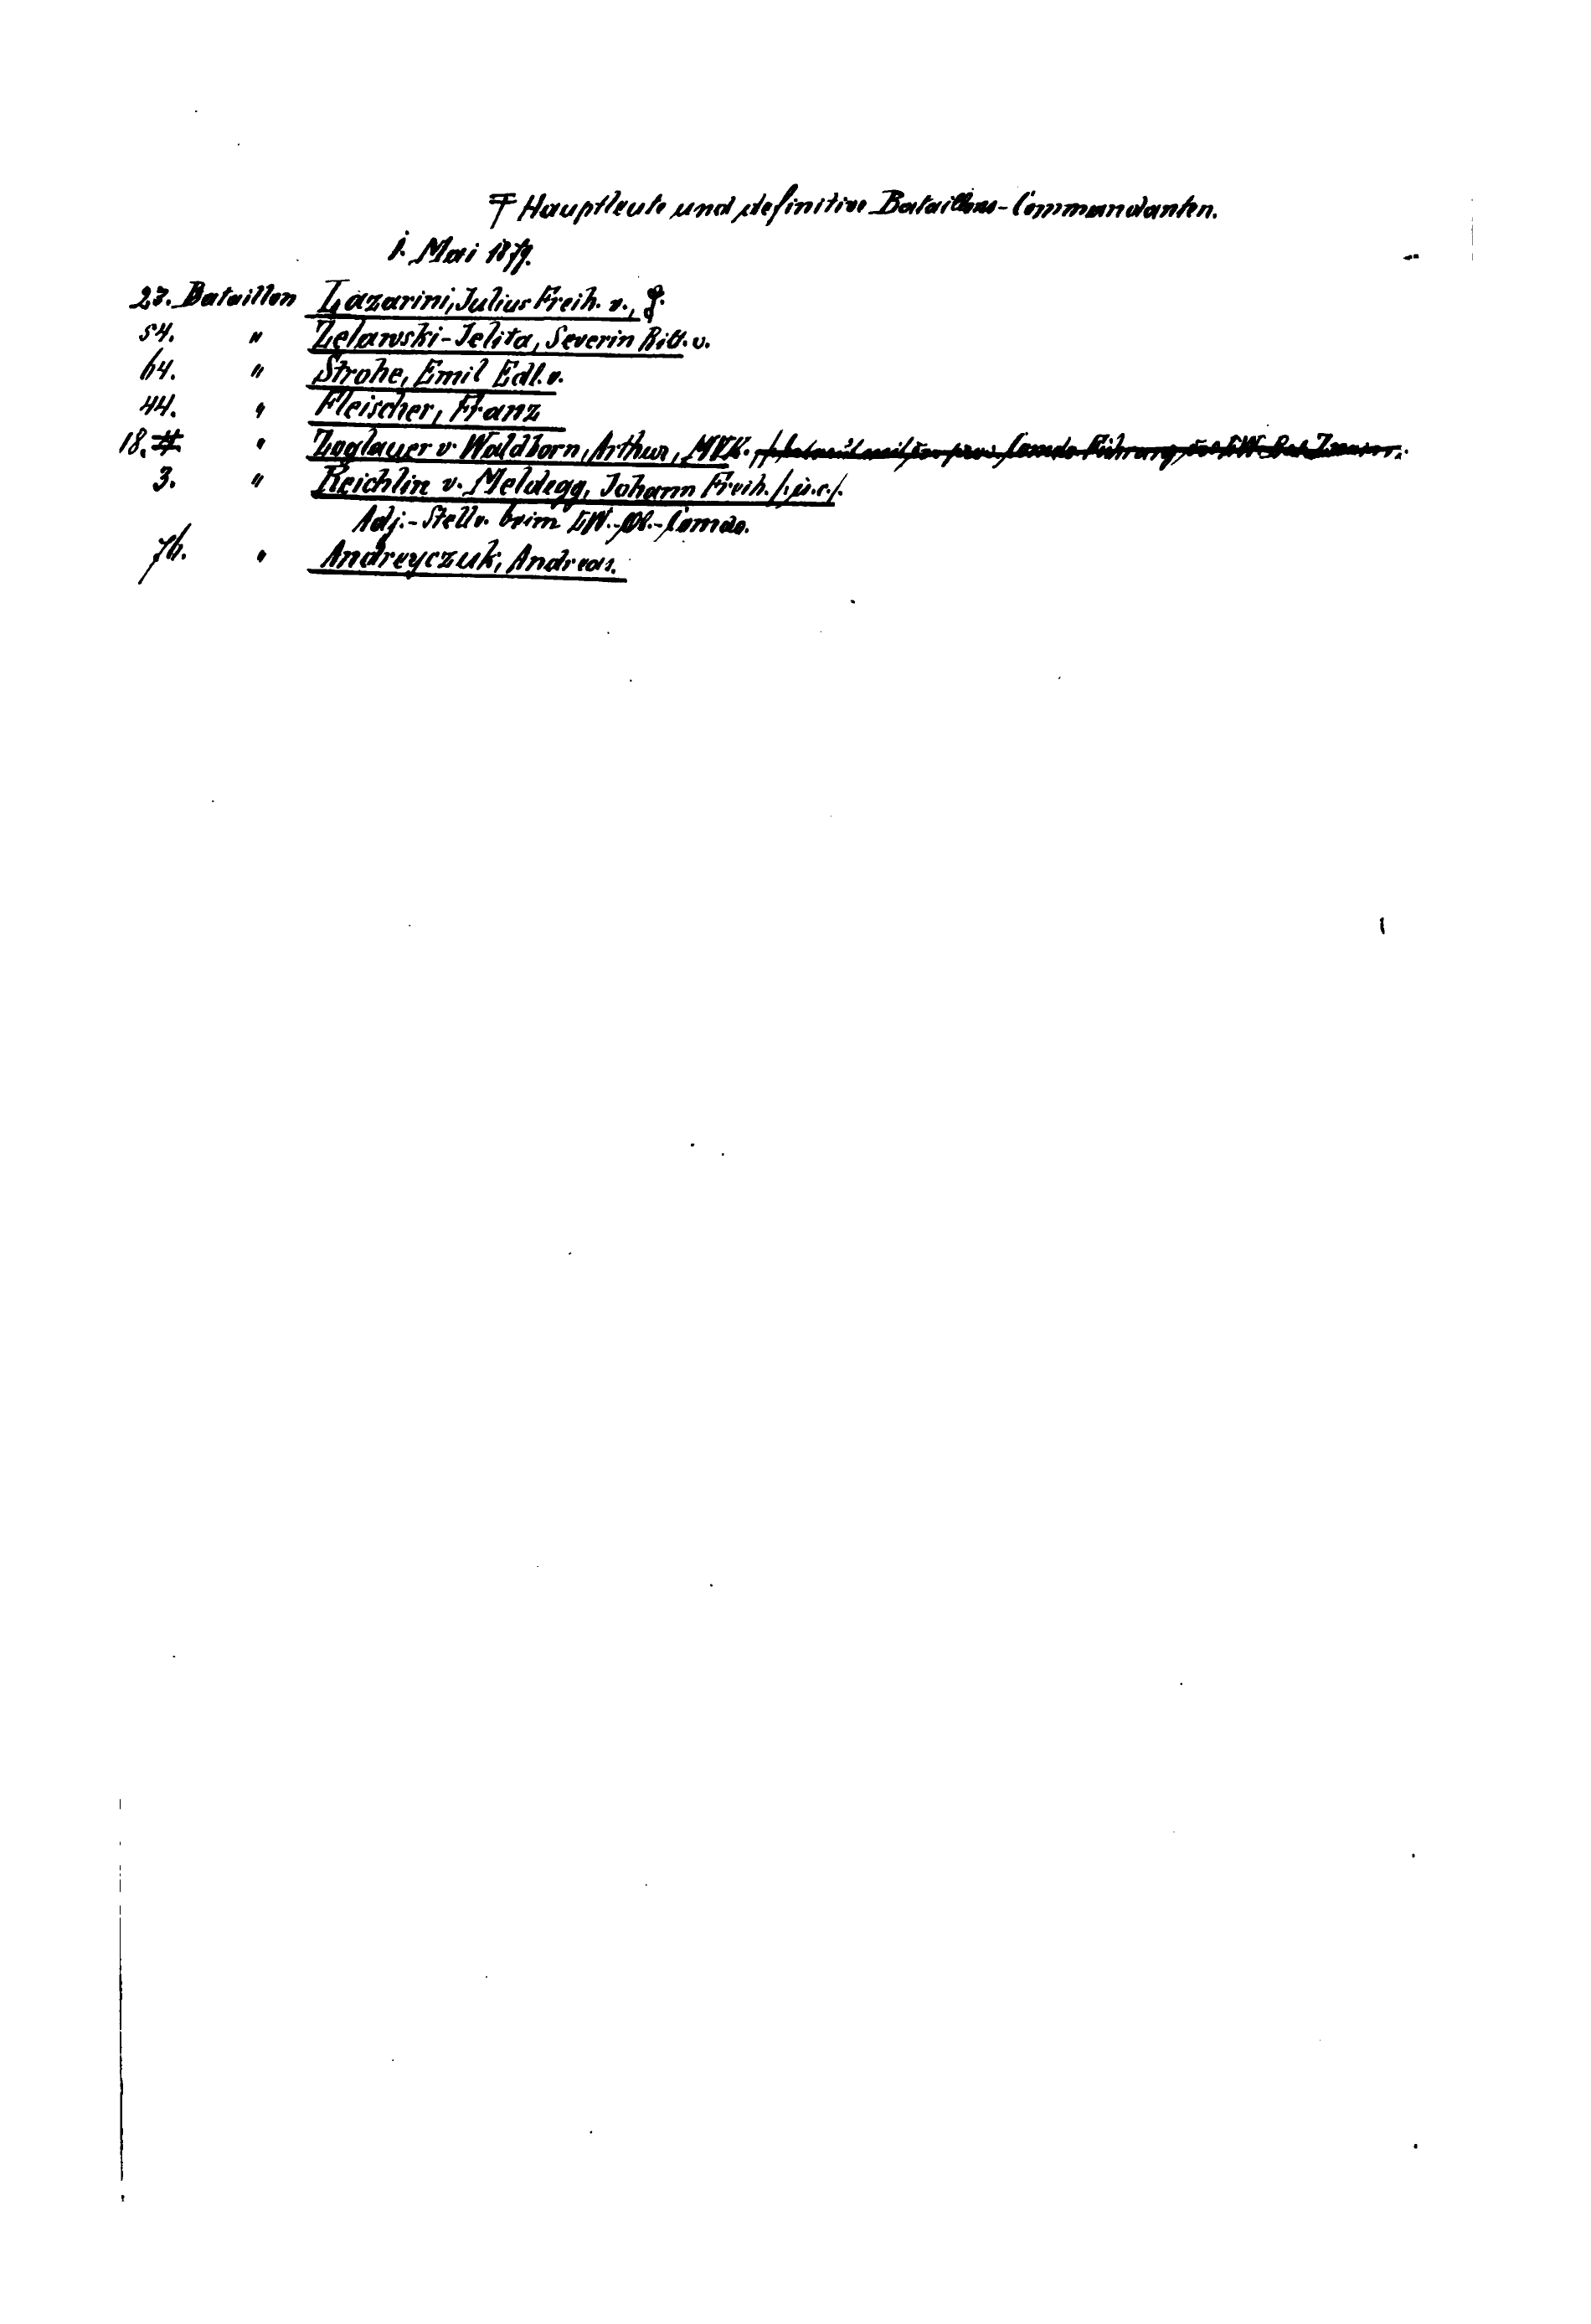 Hauptleute und definitive Bataillons-Commandanten.
1. Mai 1879.
27. Bataillon Lazarini, Julius Freih. v.,
54. " Zelawski-Jelita, Severin Ritt. v.
64. " Strohe, Emil Edl. v.
44. " Fleischer, Franz
18. " Zoglauer v. Waldborn, Arthur, MVK.
3. " Reichlin v. Meldegg, Johann Freih. /:ü.c:/.
Adj.-Stellv. beim LW.-Ob.-Comdo.
76. " Andreyczuk, Andreas.